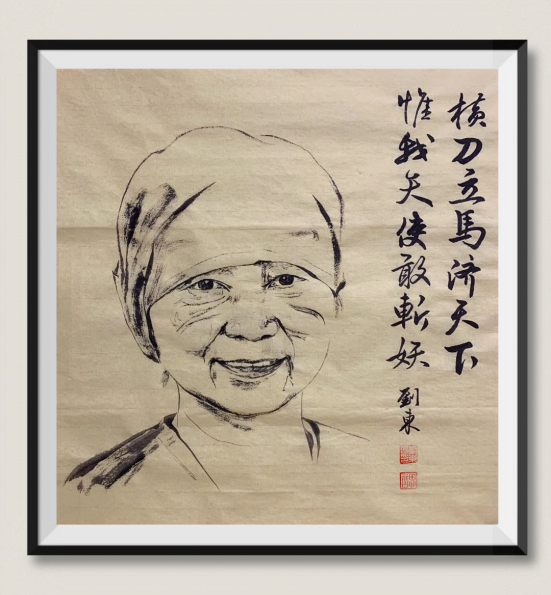 橫刀立馬济天下
惟我天使敢斬妖
到東